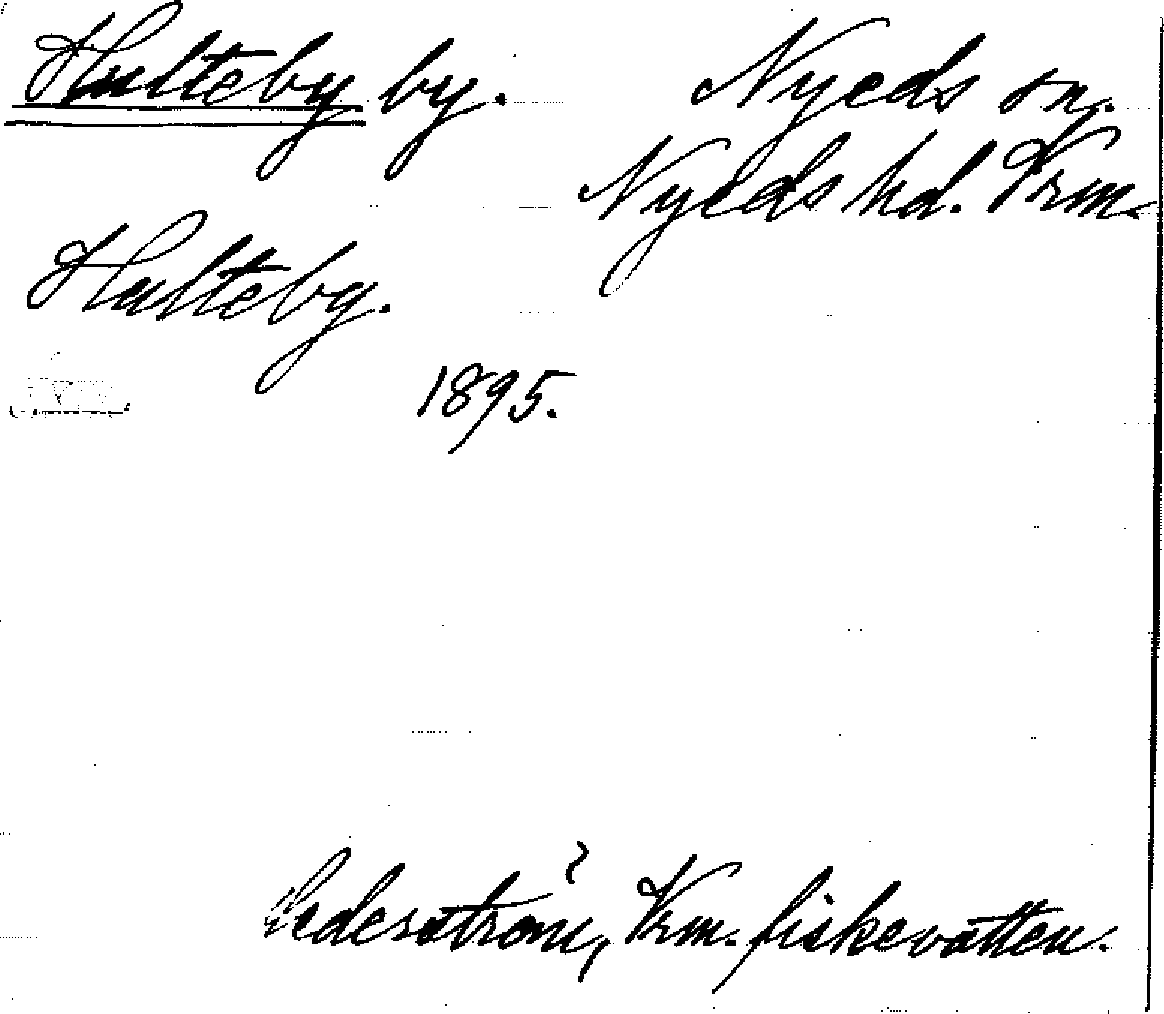 Hulteby by. Nyeds sn.
Nyeds hd. Vrm.
Hulteby.
1895.
Cederström, Vrm. fiskevatten.